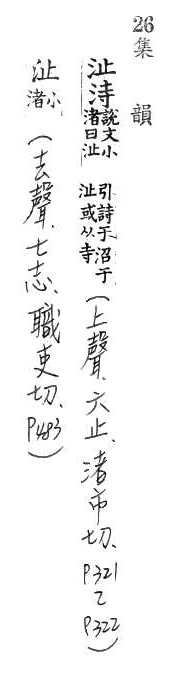 26集韻
沚㳵說文小渚曰沚引詩于沼于沚或从寺(上聲、六止、渚市切、P321乙P322)
沚小渚(去聲、七志、職吏切、P483)